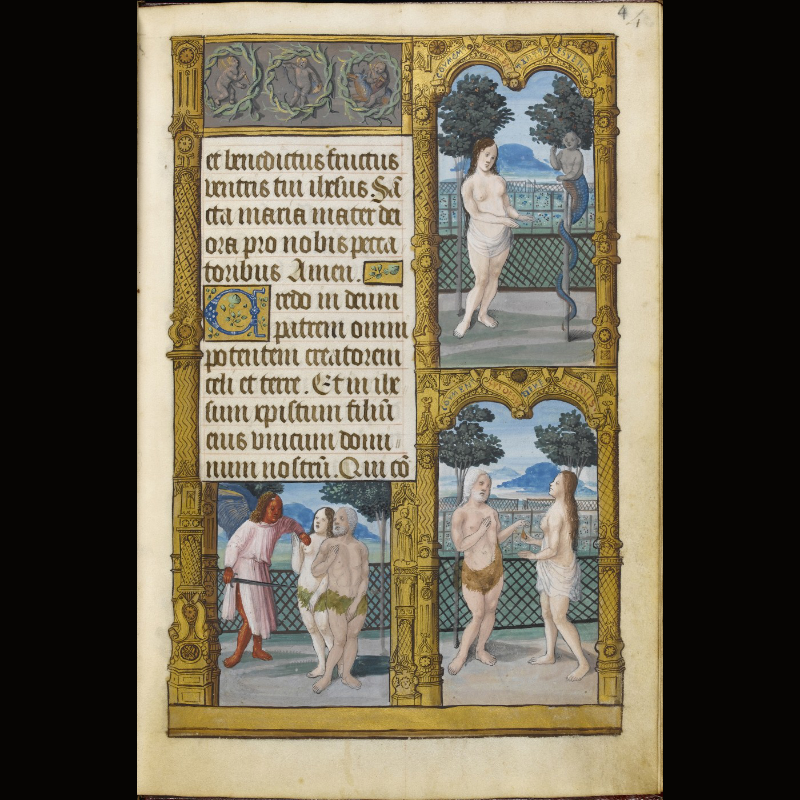 4
1
et benedictus fructus
ventris tui ihesus. Sā
cta maria mater dei
ora pro nobis pecca
toribus Amen.
Credo in deum
patrem omni
potentem creatorem
celi et terre. Et in ihe
sum xpistum filiū
eius vnicum domi
num nostrū. Qui cō